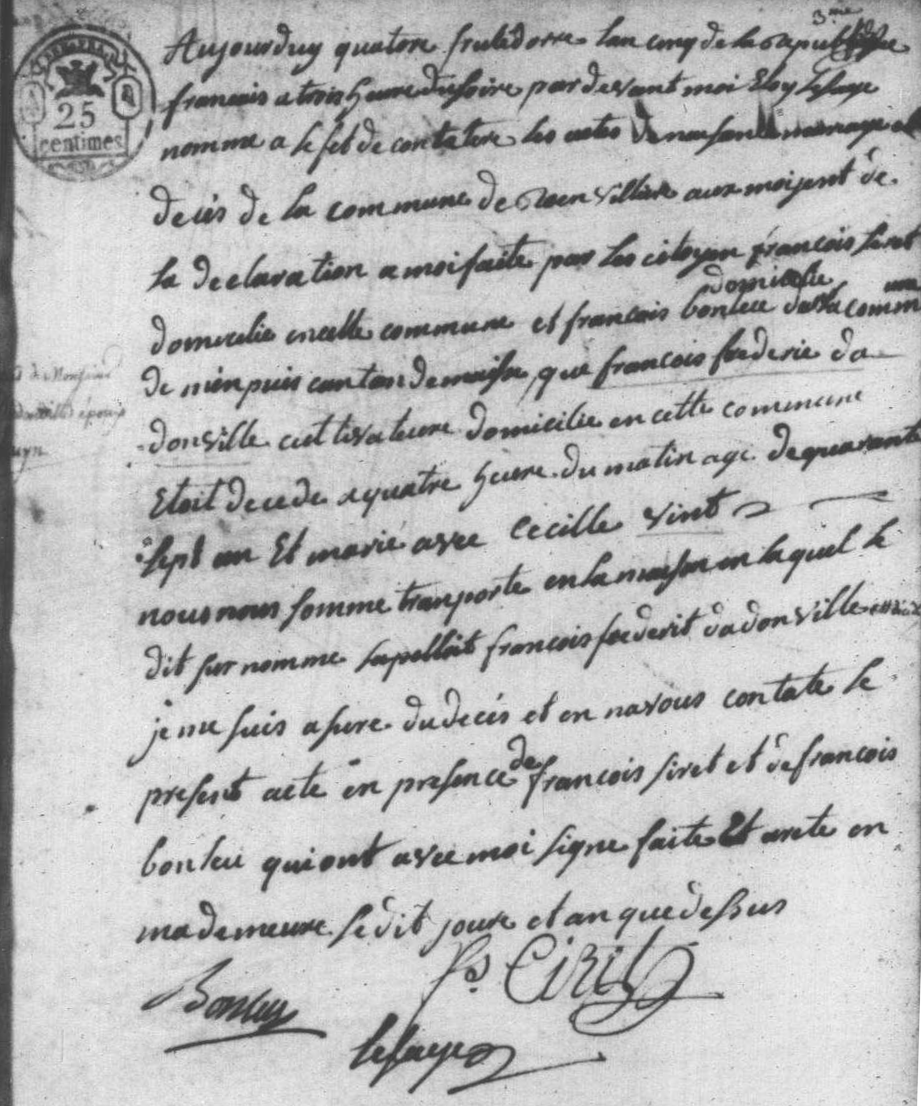 3.me
25
centimes
Aujourduy quatore frutidorre lan cinq de la Rapublique
francais a trois heure du soire par devant moi Eloy Lefaye
nomme a lefet de contatere les actes de naisance mariage et
deces de la commune de aux moijent de
la declaration a moi faite par les citoyen françois siret
domicilie en cette commune et francois bonleu domicilie dans la commune
de canton de maisse que francois frederic da
donville cultivateure domicilie en cette commune
Etoit decede a quatre heure du matin age de quarante
sept an Et marié avec Cecille vint
nous nous somme tranporte en la maison en laquel le
dit sur nomme sapelloit francois frederit dadonville
je me suis asure du decés et en navons contate le
present acte en presence de francois siret et de francois
bonleu qui ont avec moi signe faite Et arete en
ma demeure ledit joure et an que dessus
Bonleu
fs Ciret
lefaye